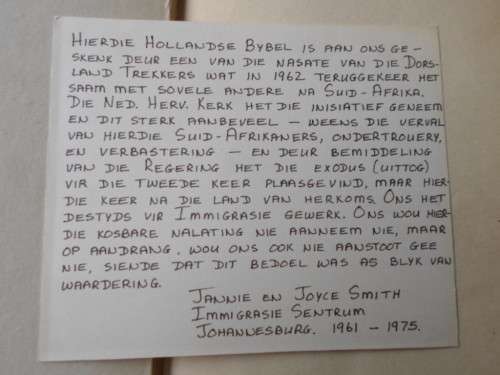 HIERDIE HOLLANDSE BYBEL IS AAN ONS GE-
SKENK DEUR EEN VAN DIE NASATE VAN DIE DORS-
LAND TREKKERS WAT IN 1962 TERUGGEKEER HET
SAAM MET SOVELE ANDERE NA SUID-AFRIKA.
DIE NED. HERV. KERK HET DIE INISIATIEF GENEEM
EN DIT STERK AANBEVEEL – WEENS DIE VERVAL
VAN HIERDIE SUID-AFRIKANERS, ONDERTROUERY,
EN VERBASTERING – EN DEUR BEMIDDELING
VAN DIE REGERING HET DIE EXODUS (UITTOG)
VIR DIE TWEEDE KEER PLAASGEVIND, MAAR HIER-
DIE KEER NA DIE LAND VAN HERKOMS. ONS HET
DESTYDS VIR IMMIGRASIE GEWERK. ONS WOU HIER-
DIE KOSBARE NALATING NIE AANNEEM NIE, MAAR
OP AANDRANG, WOU ONS OOK NIE AANSTOOT GEE
NIE, SIENDE DAT DIT BEDOEL WAS AS BLYK VAN
WAARDERING.
JANNIE EN JOYCE SMITH
IMMIGRASIE SENTRUM
JOHANNESBURG. 1961 – 1975.